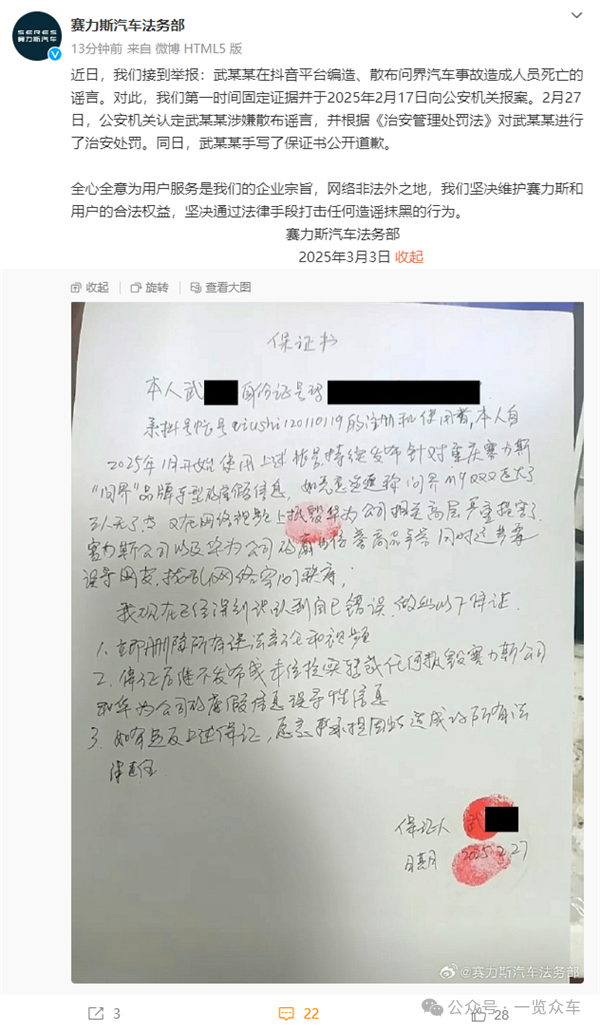 SERES
赛力斯汽车
赛力斯汽车法务部
13分钟前 来自 微博 HTML5 版
近日，我们接到举报：武某某在抖音平台编造、散布问界汽车事故造成人员死亡的
谣言。对此，我们第一时间固定证据并于2025年2月17日向公安机关报案。2月27
日，公安机关认定武某某涉嫌散布谣言，并根据《治安管理处罚法》对武某某进行
了治安处罚。同日，武某某手写了保证书公开道歉。
全心全意为用户服务是我们的企业宗旨，网络非法外之地，我们坚决维护赛力斯和
用户的合法权益，坚决通过法律手段打击任何造谣抹黑的行为。
赛力斯汽车法务部
2025年3月3日 收起
收起 旋转 查看大图
保证书
本人武 身份证号码
系抖音帐号qiushi120110119的注册和使用者,本人自
2025年1月开始使用上述帐号持续发布针对重庆赛力斯
“问界”品牌车型的虚假信息，如 问界M9
又在网络视频上抵毁华为公司相关高层严重损害了
赛力斯公司以及华为公司的商业信誉商品声誉同时
误导网友，扰乱网络空间秩序；
我现在已经深刻认识到自己错误，做出以下保证.
1. 立即删除所有违法言论和视频
2. 保证后继不发布或未经核实转载任何抵毁赛力斯公司
和华为公司的虚假信息误导性信息
3. 如有违反上述保证，愿意承担因此造成的所有法
律责任
保证人 武
日期 2025.2.27
@赛力斯汽车法务部
3 22 28
公众号·一览众车